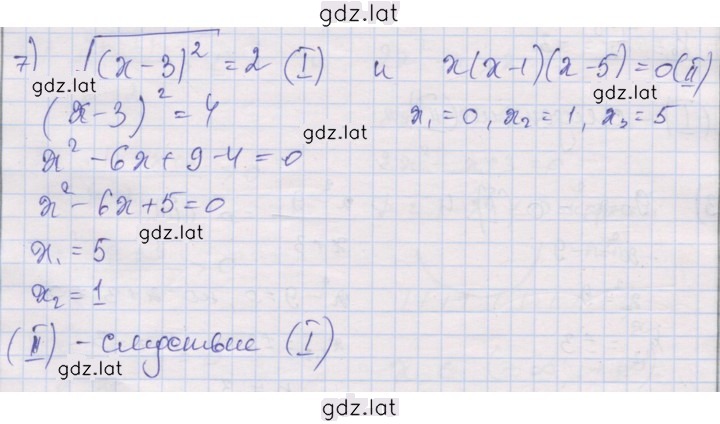 gdz.lat
7) √(x-3)² = 2 (I) и x(x-1)(x-5)=0 (II)
gdz.lat gdz.lat
(x-3)² = 4 x₁ = 0, x₂ = 1, x₃ = 5
gdz.lat
x² - 6x + 9 - 4 = 0
x² - 6x + 5 = 0
gdz.lat
x₁ = 5
x₂ = 1
(II) - следствие (I)
gdz.lat
gdz.lat